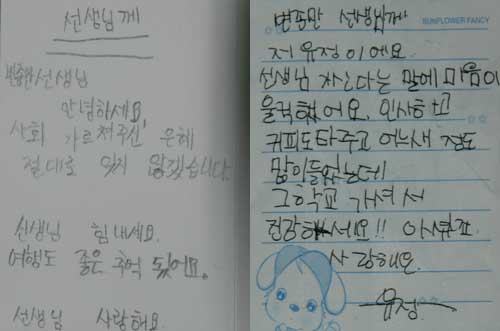 선생님께
변종만선생님
안녕하세요.
사회 가르쳐주신 은혜
절대로 잊지 않겠습니다
선생님 힘내세요.
여행도 좋은 추억 됬어요.
선생님 사랑해요.
변종만 선생님께
SUNFLOWER FANCY
저 유정이에요.
선생님 가신다는 말에 마음이
울컥했어요. 인사하고
커피도타주고 어느새 정도
많이들었는데
그학교 가셔서
건강하세요!! 아셨죠.
사랑해요
유정